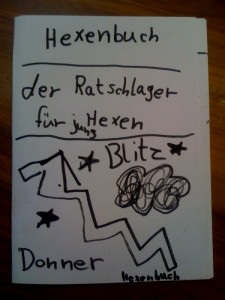 Hexenbuch
der Ratschlager
für jung Hexen
Blitz
Donner
Hexenbuch